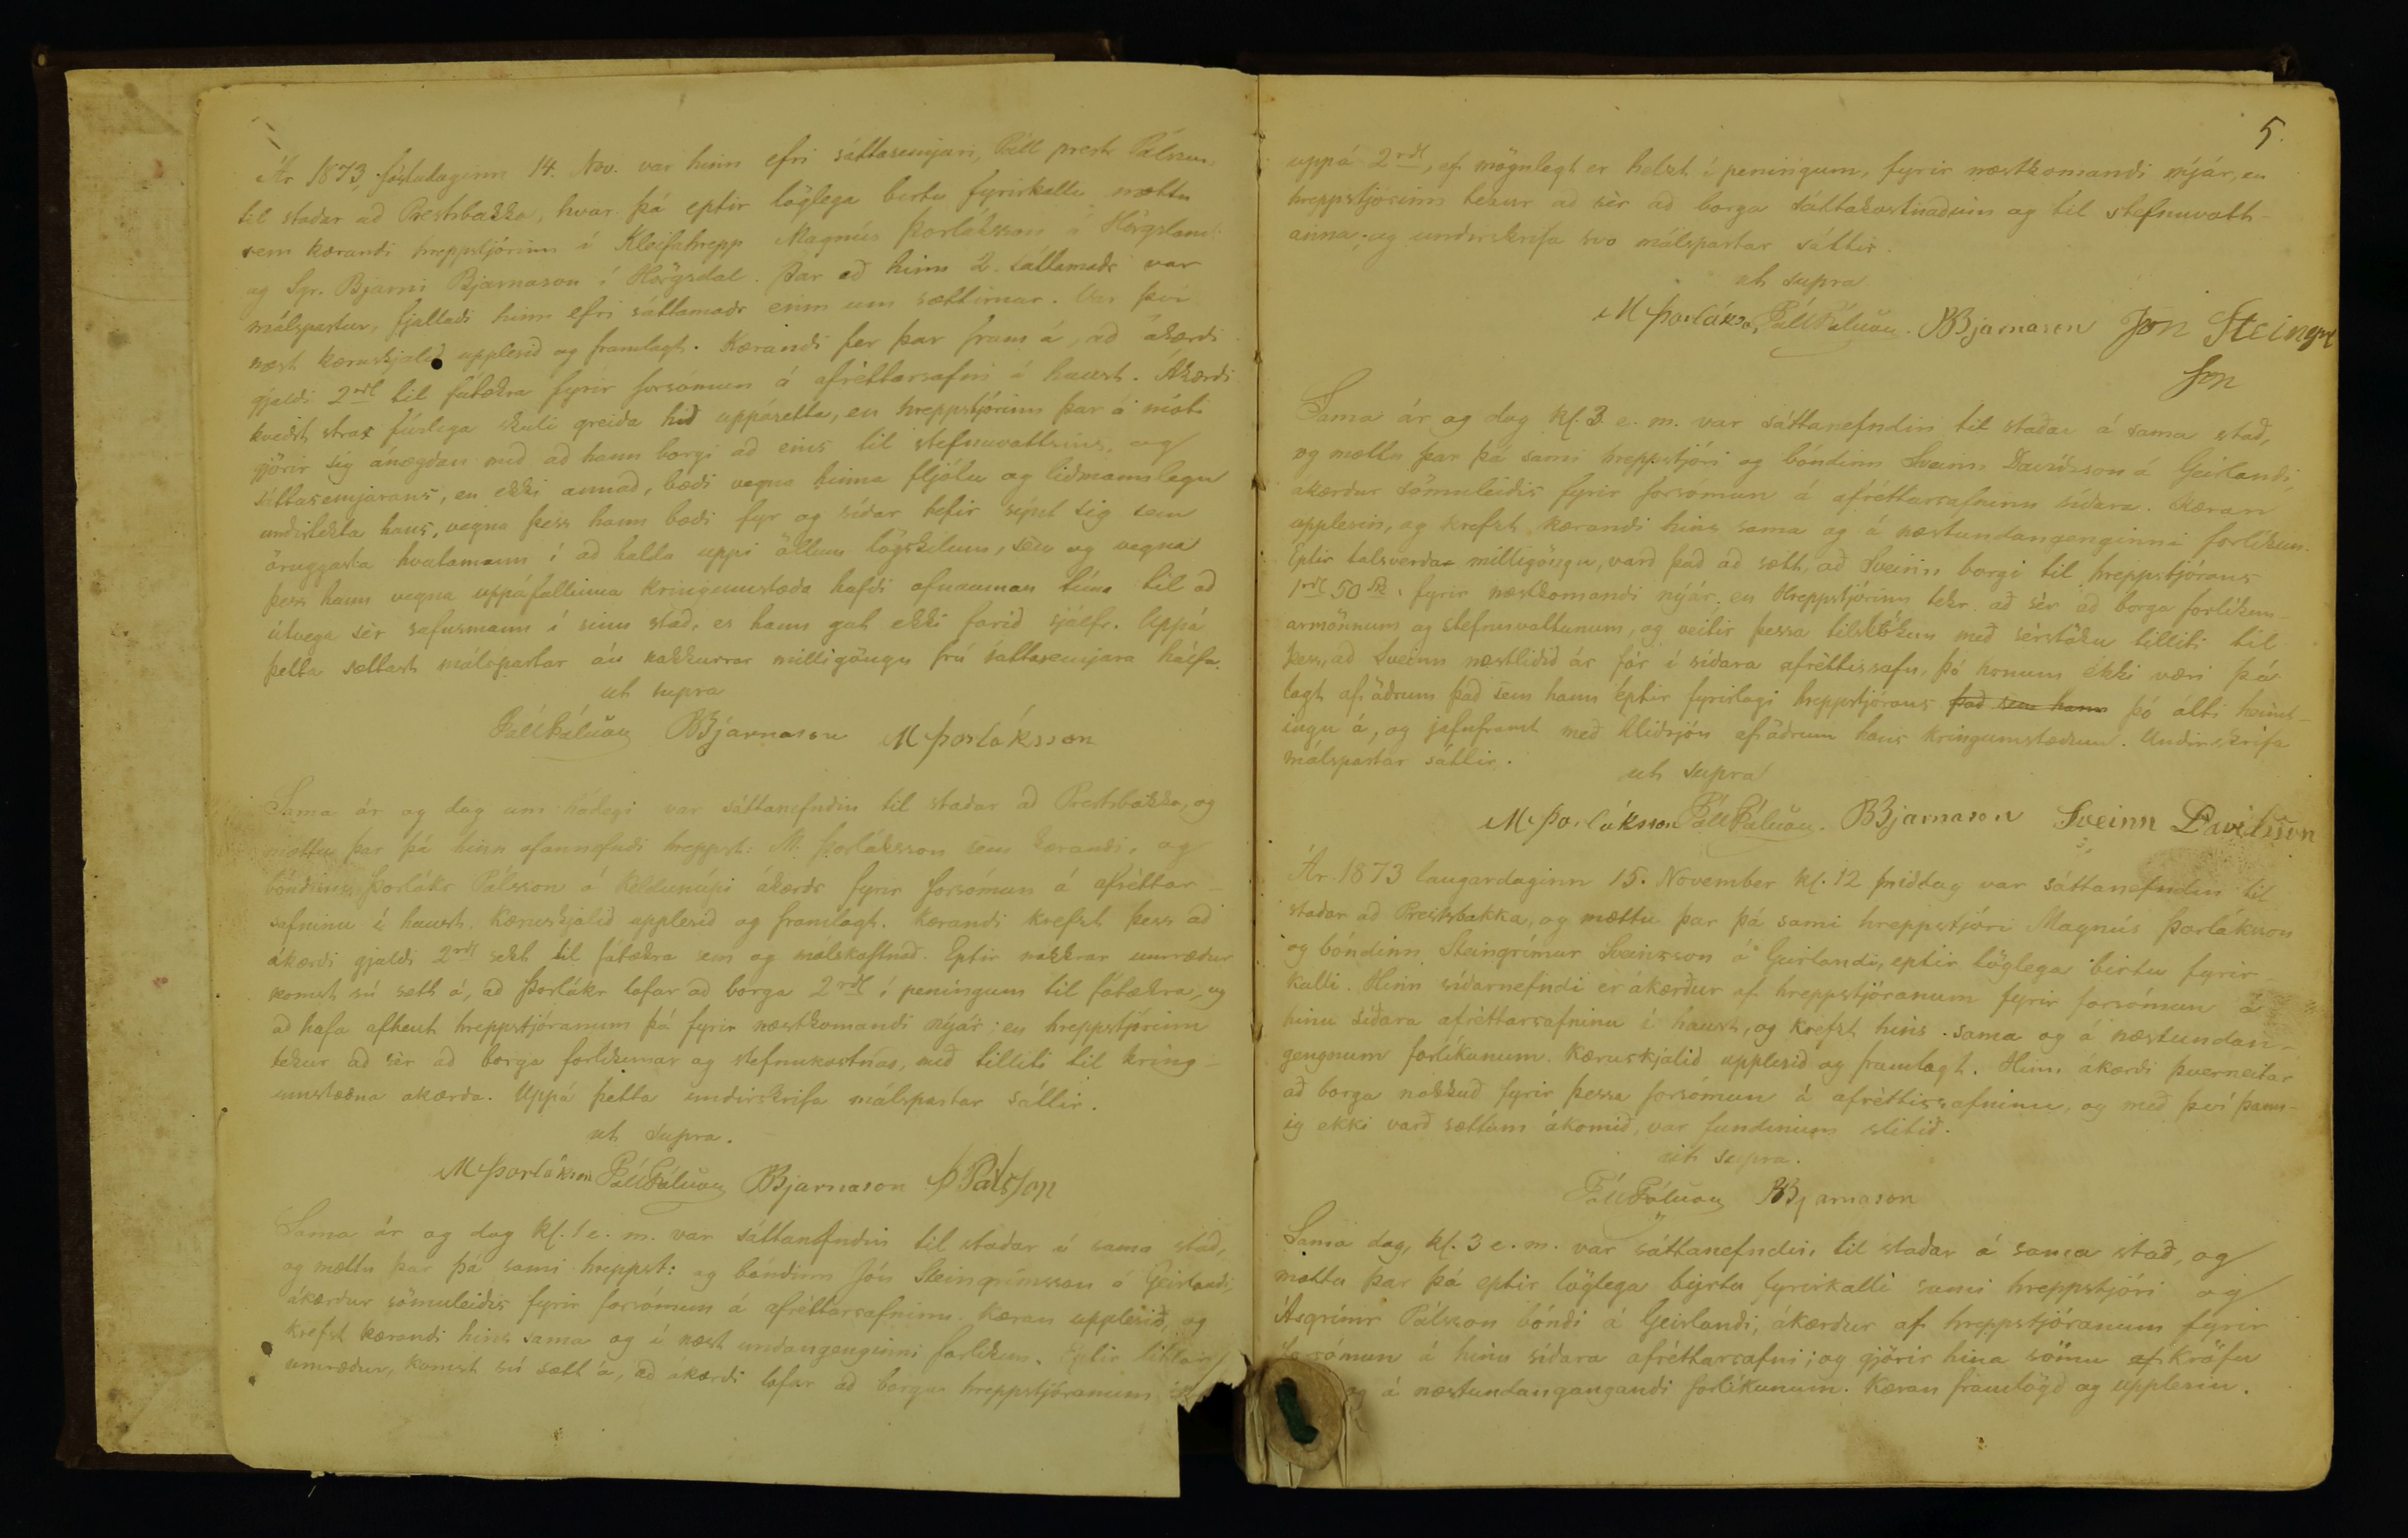 Ár 1873, föstudaginn 14. Nov. var hinn efri sáttasemjari, Páll prestr Pálsson,
til staðar að Prestsbakka, hvar þá eptir löglega birtu fyrirkalli mættu
sem kærandi hreppstjórinn í Kleifahrepp Magnús Þorláksson á Hörgsland
og Sgr. Bjarni Bjarnason í Hörgsdal. Þar eð hinn 2. sáttamaðr var
málspartur, fjallaði hinn efri sáttamaðr einn um sættirnar. Var því
næst kæruskjalið upplesið og framlagt. Kærandi fer þar fram á, að ákærði
gjaldi 2 rdl til fátækra fyrir forsómun á afréttarsafni í haust. Ákærði
kveðst strax fúslega skuli greiða hið uppásetta, en hreppstjórinn þar á móti
gjörir sig ánægðan með að hann borgi að eins til stefnuvottsins, og
sáttasemjarans, en ekki annað, bæði vegna hinna fljótu og liðmannslegu
undirtekta hans, vegna þess hann bæði fyr og síðar hefir sýnt sig sem
öruggasta hvatamann í að halda uppi öllum lögskilum, sem og vegna
þess hann vegna uppáfallinna kringumstæða hafði ofnauman tíma til að
útvega sér safnsmann í sinn stað, er hann gat ekki farið sjálfr. Uppá
þetta sættast málspartar án nokkurrar milligöngu frá sáttasemjara hálfu.
ut supra
Páll Pálsson BBjarnason MÞorláksson
Sama ár og dag um hádegi var sáttanefndin til staðar að Prestsbakka, og
mættu þar þá hinn ofannefndi hreppst: M. Þorláksson sem kærandi, og
bóndinn Þorlákr Pálsson á Keldunúpi ákærðr fyrir forsómun á afréttar-
safninu í haust. Kæruskjalið upplesið og framlagt. Kærandi krefst þess að
ákærði gjaldi 2 rdl sekt til fátækra sem og málskostnað. Eptir nokkrar umræður
komst sú sætt á, að Þorlákr lofar að borga 2 rdl í peningum til fátækra, og
að hafa afhent hreppstjóranum þá fyrir næstkomandi nýár; en hreppstjórinn
tekur að sér að borga forlíkunar og stefnukostnað, með tilliti til kring-
umstæðna ákærða. Uppá þetta undirskrifa málspartar sáttir.
ut supra.
MÞorláksson Páll Pálsson BBjarnason Þ Pálsson
Sama ár og dag kl. 1 e. m. var sáttanefndin til staðar á sama stað,
og mættu þar þá sami hreppst: og bóndinn Jón Steingrímsson á Geirlandi,
ákærður sömuleiðis fyrir forsómun á afréttarsafninu. Kæran upplesið, og
krefst kærandi hins sama og á næst undangenginni forlíkun. Eptir litlar
umræður, komst sú sætt á, að ákærði lofar að borga hreppstjóranum
5.
uppá 2 rdl, ef mögulegt er helzt í peningum, fyrir næstkomandi nýjár, en
hreppstjórinn tekur að sér að borga sáttakostnaðinn og til stefnuvott-
anna; og undirskrifa svo málspartar sáttir.
ut supra
MÞorláksso, Páll Pálsson. BBjarnason Jón Steingrí
son
Sama ár og dag kl. 3 e. m. var sáttanefndin til staðar á sama stað,
og mættu þar þá sami hreppstjóri og bóndinn Sveinn Davíðsson á Geirlandi
ákærður sömuleiðis fyrir forsómun á afréttarsafninu síðara. Kæran
upplesin, og krefst kærandi hins sama og á næstundangenginni forlíkun.
Eptir talsverðar milligöngu, varð það að sætt, að Sveinn borgi til hreppstjórans
1 rdl 50 sk. fyrir næstkomandi nýár; en Hreppstjórinn tekr að sér að borga forlíkun-
armönnum og stefnuvottunum, og veitir þessa tilslökun með sérstöku tilliti til
þess, að Sveinn næstliðið ár fór í síðara afréttissafn, þó honum ekki væri þá
lagt af öðrum það sem hann eptir fyrirlagi hreppstjórans það sem hann þó átti heimt-
ingu á, og jafnframt með hliðsjón af öðrum hans kringumstæðum. Undirskrifa
málspartar sáttir.
ut supra
MÞorláksson Páll Pálsson. BBjarnason Sveinn Davíðsson
Ár 1873 laugardaginn 15. November kl. 12 middag var sáttanefndin til
staðar að Prestsbakka, og mættu þar þá sami hreppstjóri Magnús Þorláksson
og bóndinn Steingrímur Sveinsson á Geirlandi, eptir löglega birtu fyrir-
kalli. Hinn síðarnefndi er ákærður af hreppstjóranum fyrir forsómun á
hinu síðara afréttarsafninu í haust, og krefst hins sama og á næstundan-
gengnum forlíkunum. Kæruskjalið upplesið og framlagt. Hinn ákærði þverneitar
að borga nokkuð fyrir þessa forsómun á afréttissafninu, og með því þann-
ig ekki varð sættum ákomið, var fundinum slitið.
ut supra.
Páll Pálsson BBjarnason
Sama dag, kl. 3 e. m. var sáttanefndin til staðar á sama stað, og
mættu þar þá eptir löglega byrtu fyrirkalli sami hreppstjóri og
Ásgrímr Pálsson bóndi á Geirlandi, ákærður af hreppstjóranum fyrir
forsómun á hinu síðara afréttarsafni; og gjörir hina sömu af kröfu
og á næstundangangandi forlíkunum. Kæran framlögð og upplesin.